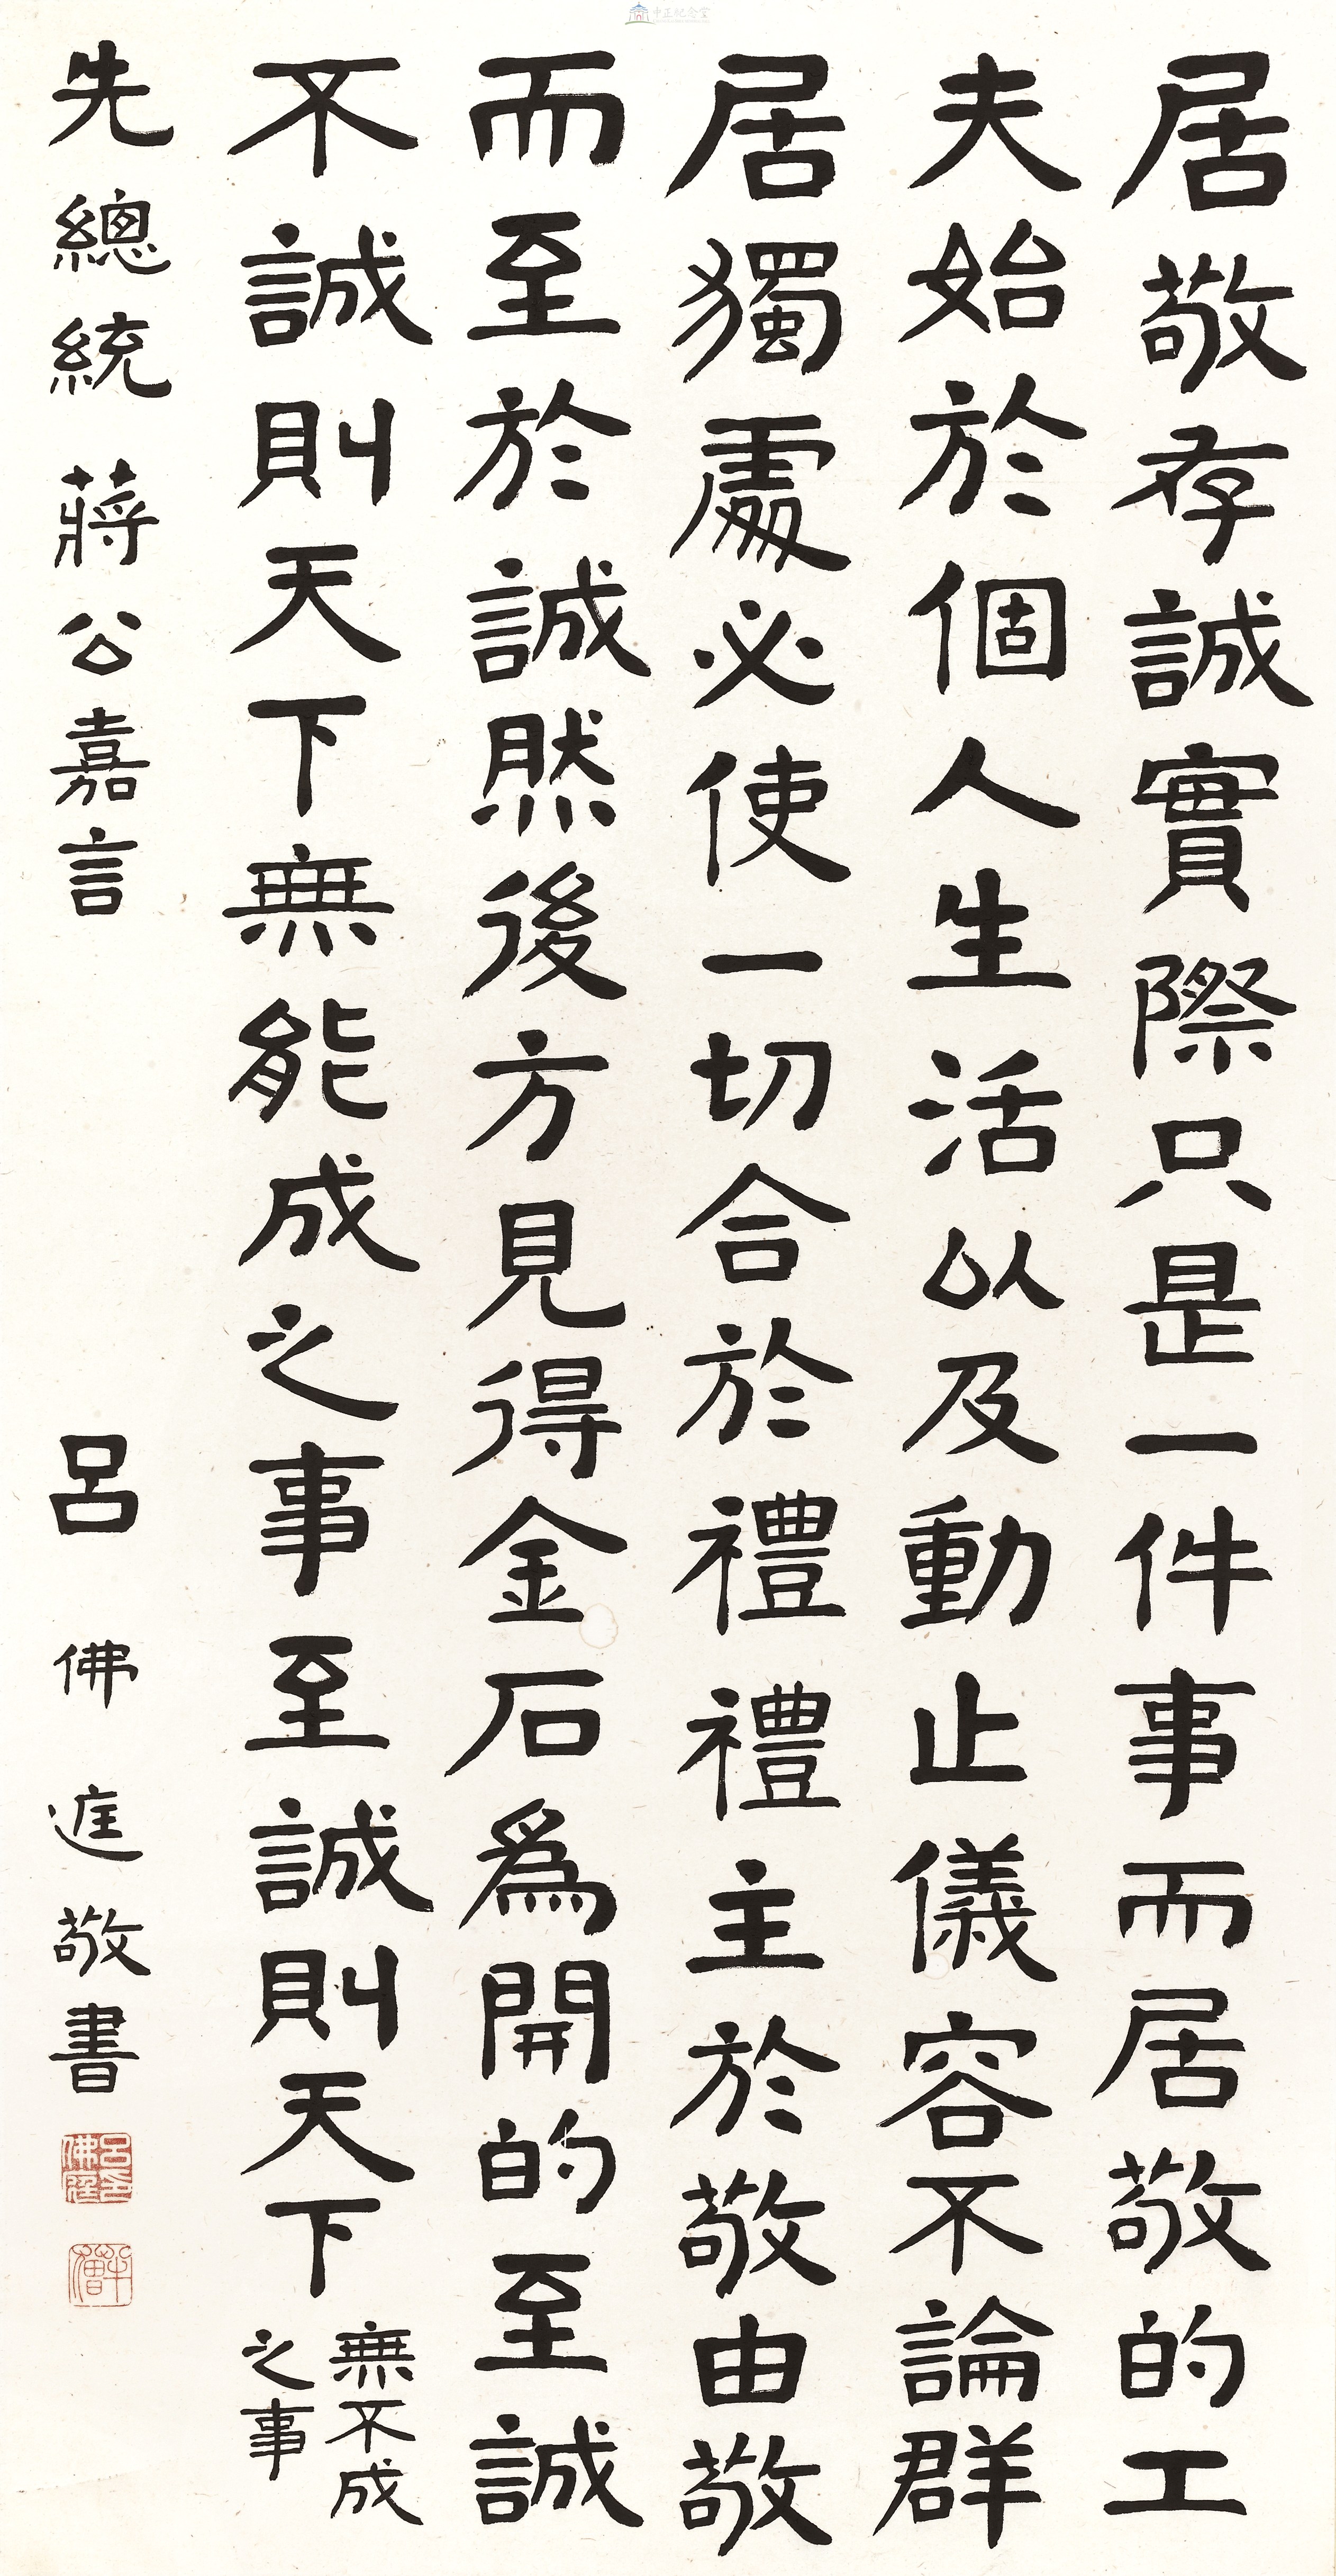 中正紀念堂
居敬存誠實際只是一件事而居敬的工
夫始於個人生活以及動止儀容不論群
居獨處必使一切合於禮禮主於敬由敬
而至於誠然後方見得金石為開的至誠
不誠則天下無能成之事至誠則天下無不成
之事
先總統 蔣公嘉言 呂佛庭敬書
呂佛庭印
半僧